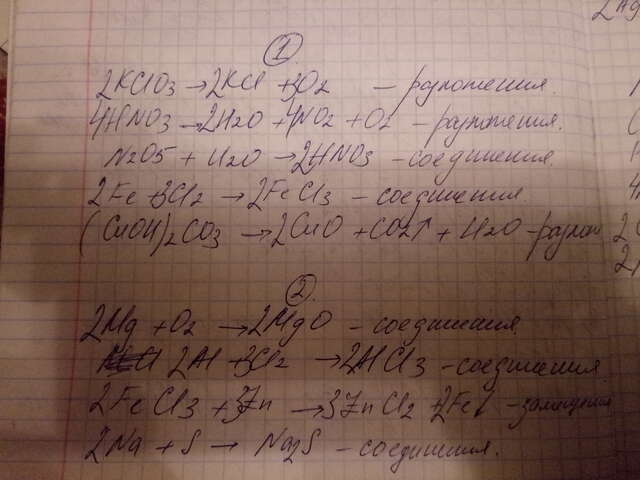 1
2KClO3 → 2KCl + 3O2 – разложения.
4HNO3 → 2H2O + 4NO2 + O2 – разложения.
N2O5 + H2O → 2HNO3 – соединения.
2Fe + 3Cl2 → 2FeCl3 – соединения.
(CuOH)2CO3 → 2CuO + CO2↑ + H2O – разлож
2.
2Mg + O2 → 2MgO – соединения.
2Al + 3Cl2 → 2AlCl3 – соединения.
2FeCl3 + 3Zn → 3ZnCl2 + 2Fe↓ – замещения
2Na + S → Na2S – соединения.